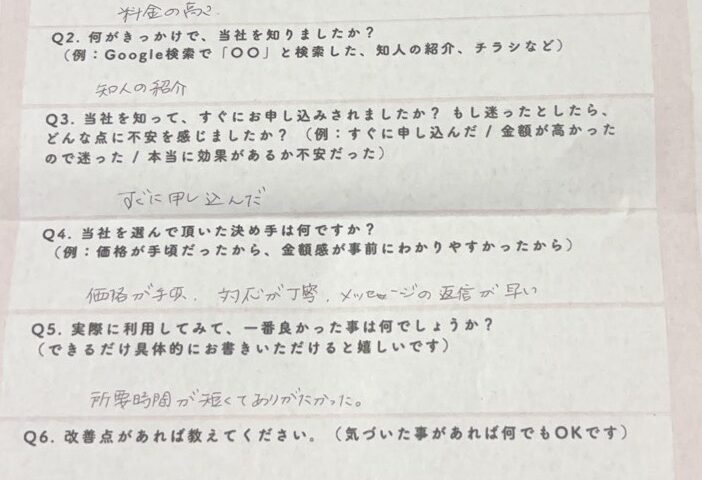 料金の高さ
Q2. 何がきっかけで、当社を知りましたか?
(例:Google検索で「〇〇」と検索した、知人の紹介、チラシなど)
知人の紹介
Q3. 当社を知って、すぐにお申し込みされましたか? もし迷ったとしたら、
どんな点に不安を感じましたか? (例:すぐに申し込んだ / 金額が高かった
ので迷った / 本当に効果があるか不安だった)
すぐに申し込んだ
Q4. 当社を選んで頂いた決め手は何ですか?
(例:価格が手頃だったから、金額感が事前にわかりやすかったから)
価格が手頃、対応が丁寧、メッセージの返信が早い
Q5. 実際に利用してみて、一番良かった事は何でしょうか?
(できるだけ具体的にお書きいただけると嬉しいです)
所要時間が短くてありがたかった。
Q6. 改善点があれば教えてください。(気づいた事があれば何でもOKです)